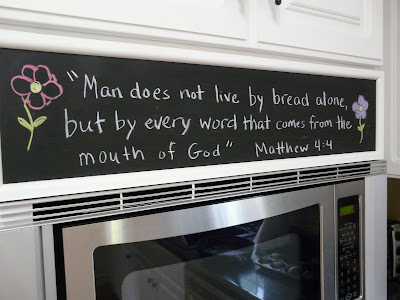 "Man does not live by bread alone,
but by every word that comes from the
mouth of God" Matthew 4:4